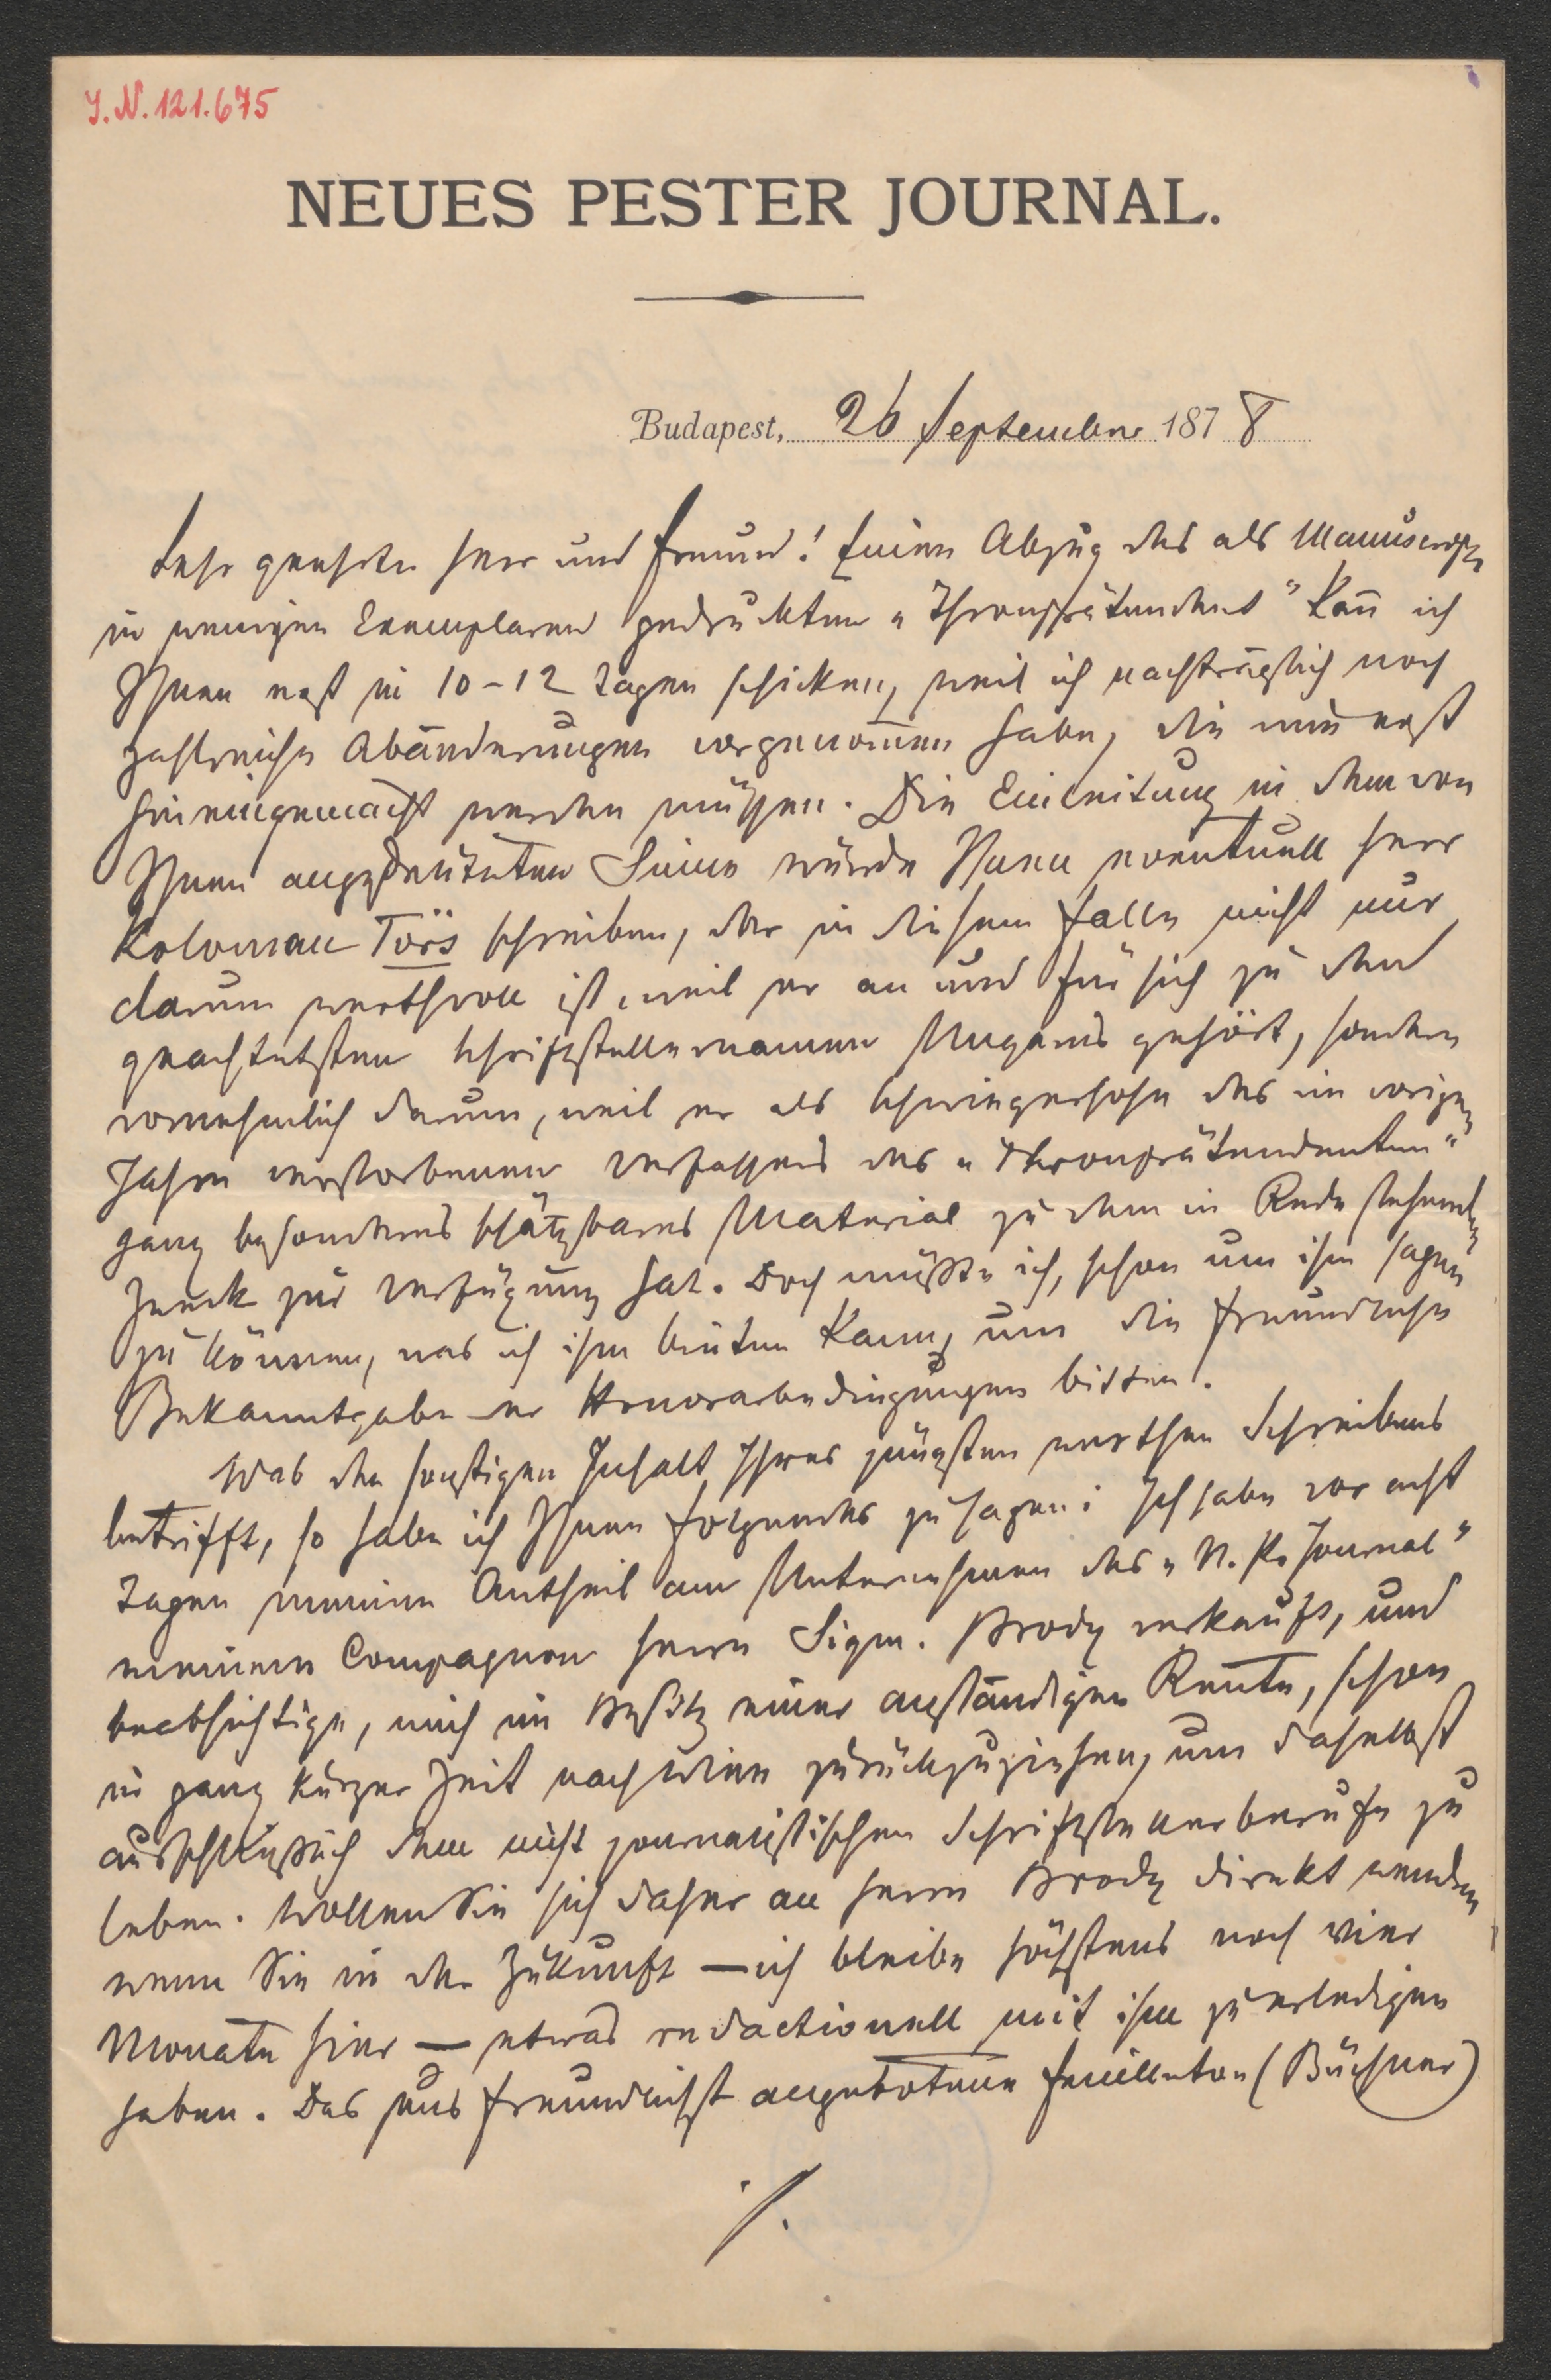 J. N. 121.675
NEUES PESTER JOURNAL.
Budapest, 26 September 1878
Sehr geehrter Herr und Freund! Einen Abzug des als Manuscript
in wenigen Exemplaren gedruckten „Thronprätendent" kañ ich
Ihnen erst in 10-12 Tagen schicken, weil ich nachträglich noch
zahlreiche Abänderungen vorgenom̅en habe, die nun erst
hineingemacht werden müssen. Die Einleitung in dem von
Ihnen angedeuteten Sinne würde Ihnen eventuell Herr
Koloman Törs schreiben, der in diesem Falle nicht nur
darum werthvoll ist, weil er an und für sich zu den
geachtetsten Schriftstellernamen Ungarns gehört, sondern
vornehmlich darum, weil er als Schwiegersohn des im vorigen
Jahre verstorbenen Verfassers des „Thronprätendenten"
ganz besonders schätzbares Material zu dem in Rede stehenden
Zweck zur Verfügung hat. Doch müßte ich, schon um ihm sagen
zu können, was ich ihm bieten kann, um die freundliche
Bekanntgabe der Honorarbedingungen bitten.
Was den sonstigen Inhalt Ihres jüngsten werthen Schreibens
betrifft, so habe ich Ihnen folgendes zu sagen: Ich habe vor acht
Tagen meinen Antheil am Unternehmen des „N. P. Journal"
meinem Compagnon Herrn Sigm. Brody verkauft, und
beabsichtige, mich im Besitz einer anständigen Rente, schon
in ganz kurzer Zeit nach Wien zurückzuziehen, um daselbst
ausschließlich dem nicht journalistischen Schriftstellerberufe zu
leben. Wollen Sie sich daher an Herrn Brody direkt wenden,
wenn Sie in der Zukunft — ich bleibe höchstens noch vier
Monate hier — etwas redactionell mit ihm zu erledigen
haben. Das uns freundlichst angebotene Feuilleton (Büchner)
./.